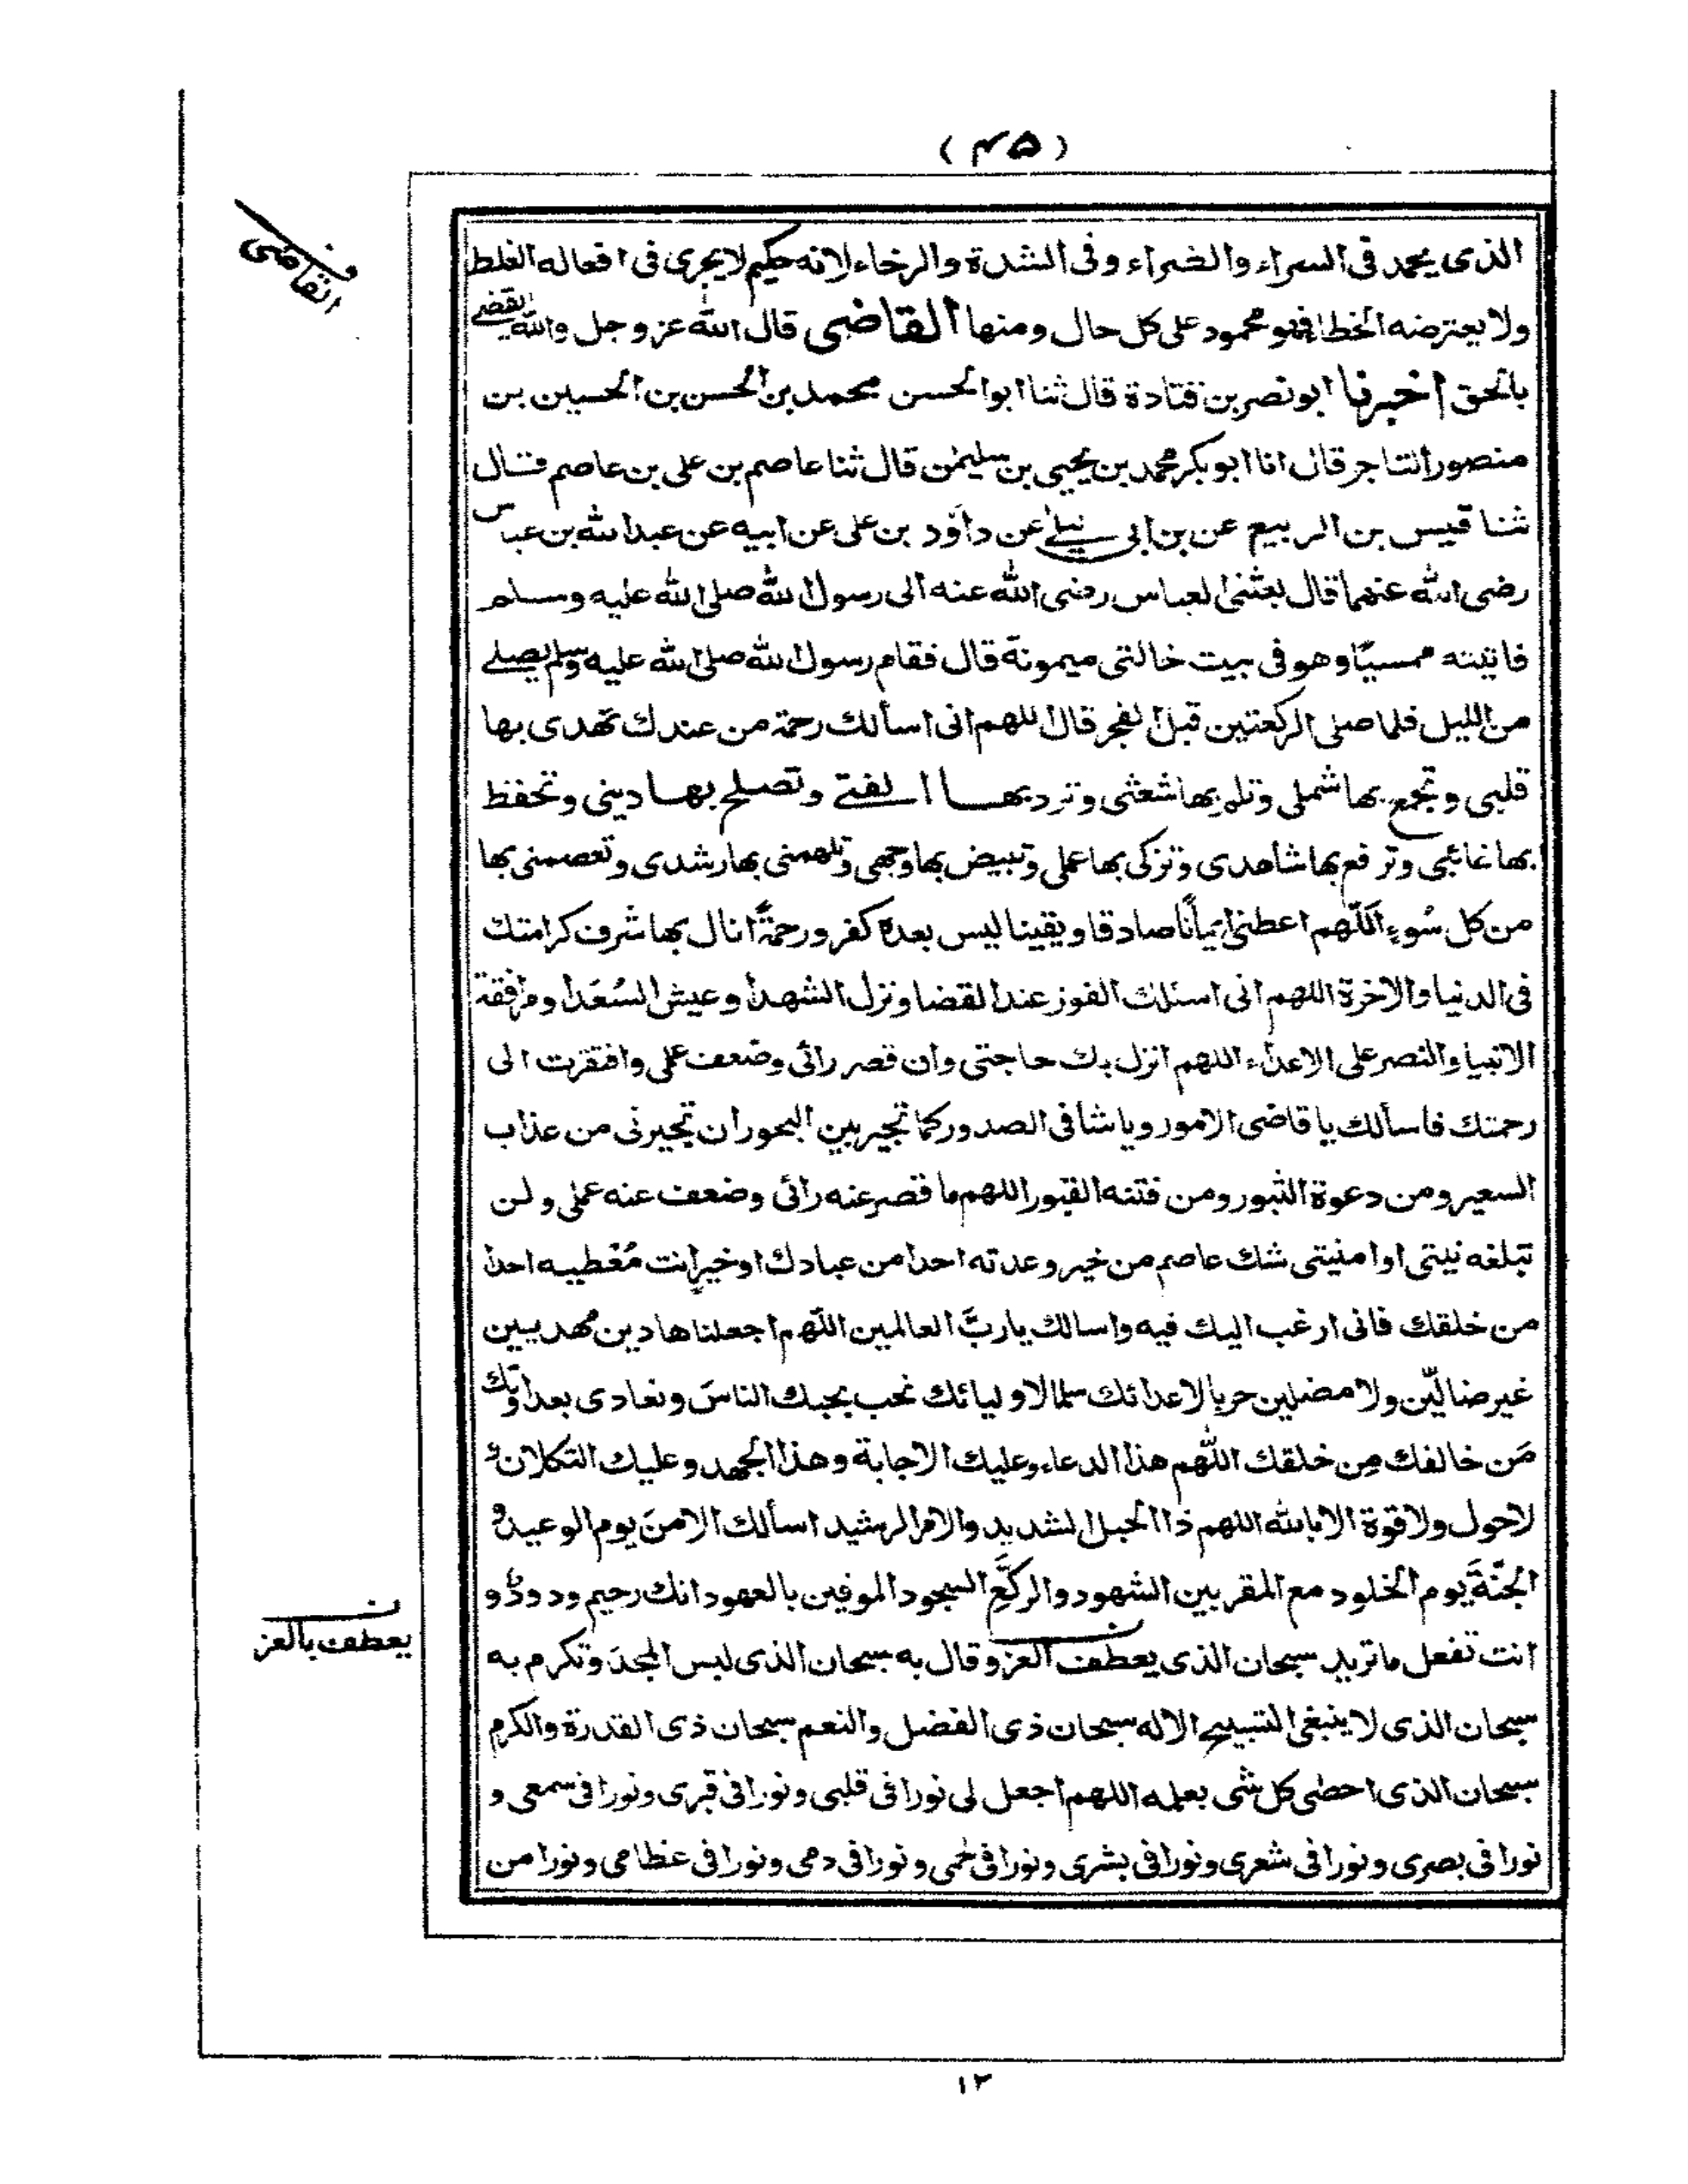 (۴۵)
القاضی
الذی یحمد فی السراء والضراء وفی الشدة والرخاء لانه حکیم لا یجری فی افعاله الغلط
ولا یعترضه الخطا فهو محمود علی کل حال ومنها القاضی قال الله عز وجل والله یقضی
بالحق اخبرنا ابو نصر بن قتادة قال ثنا ابوالحسن محمد بن الحسن بن الحسین بن
منصور التاجر قال انا ابو بکر محمد بن یحیی بن سلیمٰن قال ثنا عاصم بن علی بن عاصم قال
ثنا قیس بن الربیع عن بن ابی لیلےٰ عن داؤد بن علی عن ابیه عن عبدالله بن عباس
رضی الله عنهما قال بعثنی العباس رضی الله عنه الی رسول الله صلی الله علیه وسلم
فاتیته ممسیًا وهو فی بیت خالتی میمونة قال فقام رسول الله صلی الله علیه وسلم یصلے
من اللیل فلما صلی الرکعتین قبل الفجر قال اللهم انی اسألك رحمة من عندك تهدی بها
قلبی وتجمع بها شملی وتلم بها شعثی وترد بها الفتے وتصلح بها دینی وتحفظ
بها غائبی وترفع بها شاهدی وتزکی بها عملی وتبیض بها وجهی وتلهمنی بها رشدی وتعصمنی بها
من کل سُوءٍ اَللّٰهم اعطنی ایمانًا صادقا ویقینا لیس بعده کفر ورحمةً انال بها شرف کرامتك
فی الدنیا والاخرة اللهم انی اسئلك الفوز عند القضا ونزل الشهدا وعیش السُعَدا ومرافقة
الانبیا والنصر علی الاعداء اللهم انزل بك حاجتی وان قصر رائی وضعف عملی وافتقرت الی
رحمتك فاسألك یا قاضی الامور ویا شافی الصدور کما تجیر بین البحور ان تجیرنی من عذاب
السعیر ومن دعوة الثبور ومن فتنه القبور اللهم ما قصر عنه رائی وضعف عنه عملی ولن
تبلغه نیتی او امنیتی شك عاصم من خیر وعدته احدا من عبادك او خیر انت مُعْطیه احدا
من خلقك فانی ارغب الیك فیه واسالك یا ربَّ العالمین اللّٰهم اجعلنا هادین مهدیین
غیر ضالّین ولا مضلین حربا لاعدائك سلما لاولیائك نحب بحبك الناسَ ونعادی بعداوتك
مَن خالفك مِن خلقك اللّٰهم هذا الدعاء وعلیك الاجابة وهذا الجهد وعلیك التکلان و
لاحول ولا قوة الا بالله اللهم ذا الحبل الشدید والامر الرشید اسألك الامنَ یوم الوعید و
الجنّةَ یوم الخلود مع المقربین الشهود والرکّعِ السجود الموفین بالعهود انك رحیم ودودٌ و
انت تفعل ما ترید سبحان الذی یعطف العز وقال به سبحان الذی لبس المجدَ وتکرم به
سبحان الذی لا ینبغی التسبیح الا له سبحان ذی الفضل والنعم سبحان ذی القدرة والکرم
سبحان الذی احصی کل شی بعلمه اللهم اجعل لی نورا فی قلبی ونورا فی قبری ونورا فی سمعی و
نورا فی بصری ونورا فی شعری ونورا فی بشری ونورا فی لحمی ونورا فی دمی ونورا فی عظامی ونورا من
ن
یعطف بالعز
۱۲